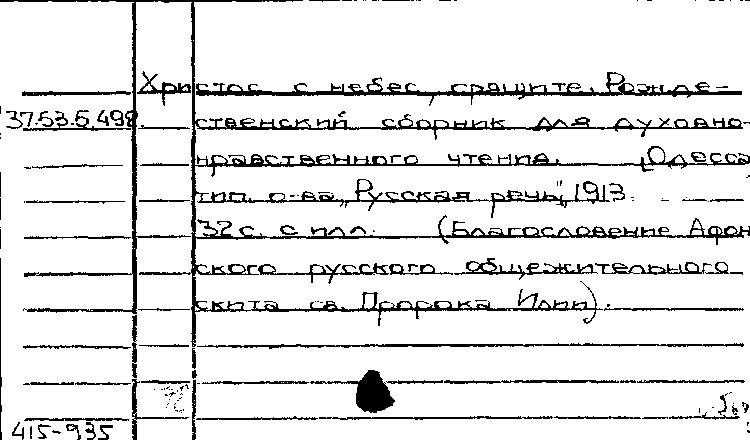 Христос с небес, срящите. Рожде-
37.53.5.498. ственский сборник для духовно-
нравственного чтения. [Одесса
тип. о-ва „Русская речь", 1913.
32 с. с илл. (Благословение Афон
ского русского общежительного
скита св. Пророка Илии).
415-935